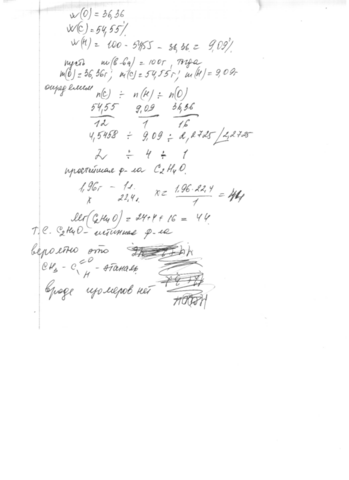 w(O) = 36,36
w(C) = 54,55%
w(H) = 100 - 54,55 - 36,36 = 9,09%
пусть m(в-ва) = 100г, тогда
m(O) = 36,36г; m(C) = 54,55г; m(H) = 9,09г
определяем
n(C) ÷ n(H) ÷ n(O)
54,55/12 9,09/1 36,36/16
4,5458 ÷ 9,09 ÷ 2,2725 / 2,2725
2 ÷ 4 ÷ 1
простейшая ф-ла C2H4O
1,96г - 1л
x 22,4л x = 1,96·22,4/1 = 44
Mr(C2H4O) = 24+4+16 = 44
т.е. C2H4O - истинная ф-ла
вероятно это
CH3 - C =O H - этаналь
вроде изомеров нет